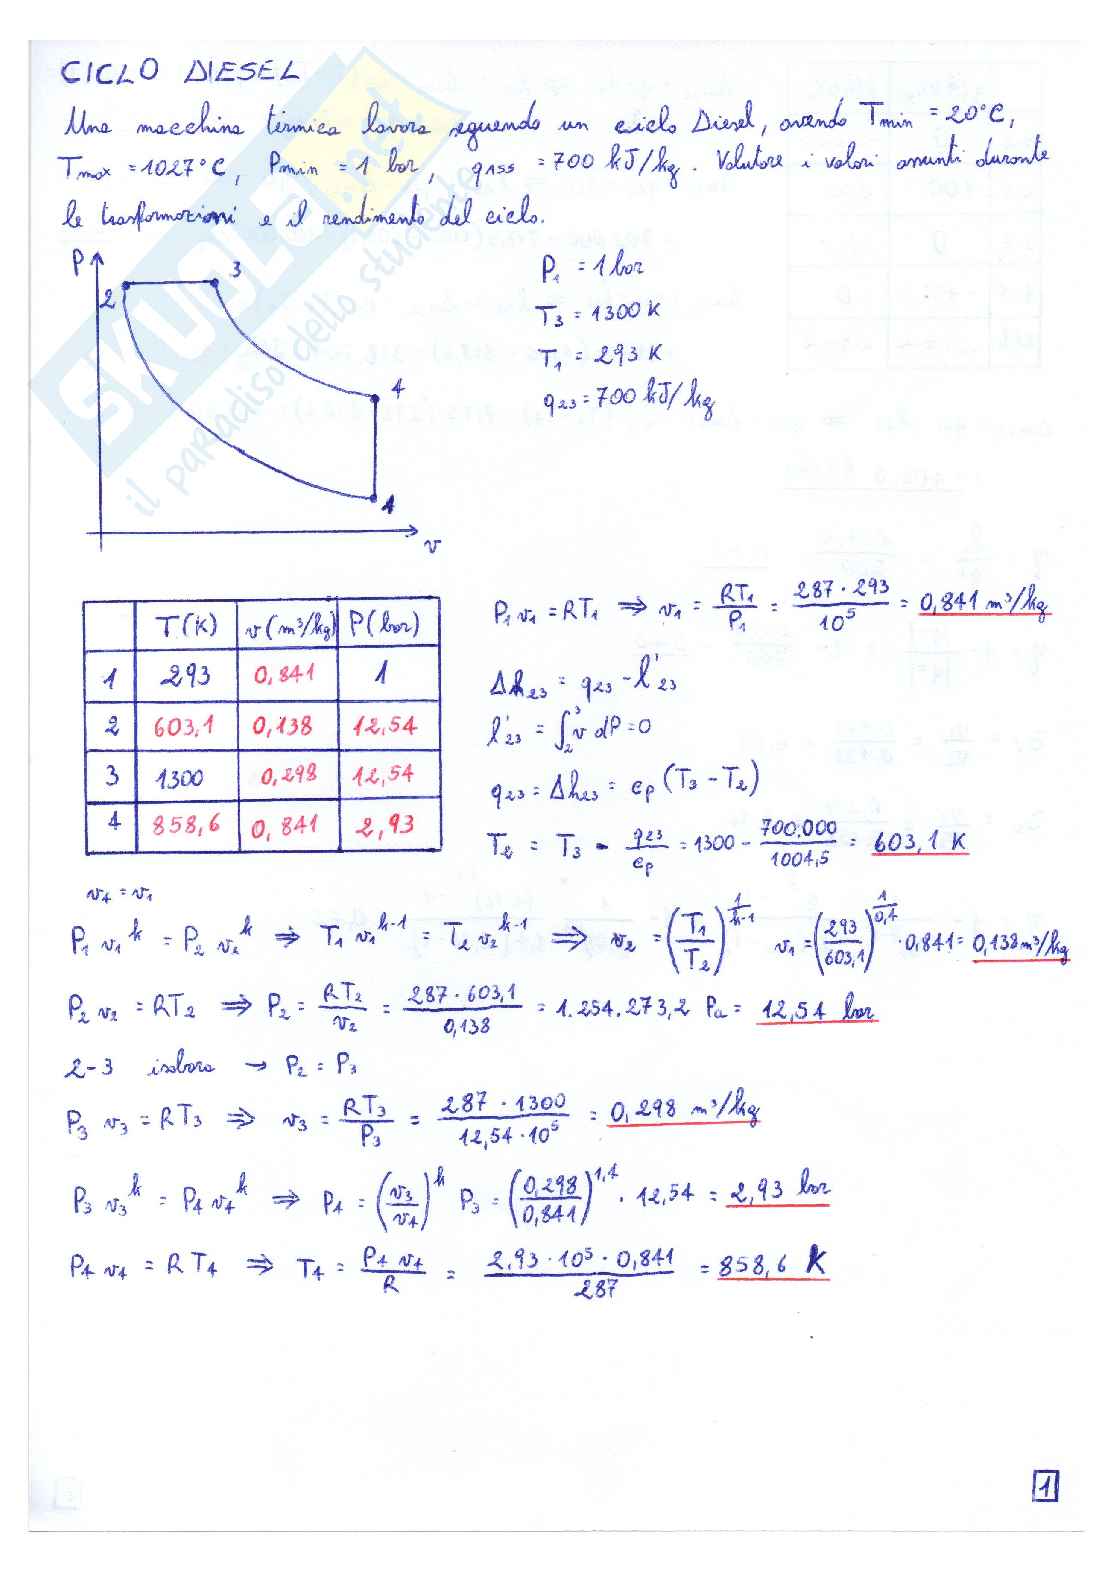 CICLO DIESEL
Una macchina termica lavora seguendo un ciclo Diesel, avendo Tmin = 20°C,
Tmax = 1027°C, Pmin = 1 bar, qASS = 700 kJ/kg. Valutare i valori assunti durante
le trasformazioni e il rendimento del ciclo.
SKUOLA.net
il paradiso dello studente
P
2
3
4
1
v
P1 = 1 bar
T3 = 1300 K
T1 = 293 K
q23 = 700 kJ/kg
T(K) v(m³/kg) P(bar)
1 293 0,841 1
2 603,1 0,138 12,54
3 1300 0,298 12,54
4 858,6 0,841 2,93
P1 v1 = RT1 ⇒ v1 = RT1/P1 = 287·293/10⁵ = 0,841 m³/kg
Δh23 = q23 - l'23
l'23 = ∫₂³ v dP = 0
q23 = Δh23 = cp (T3 - T2)
T2 = T3 - q23/cp = 1300 - 700.000/1004,5 = 603,1 K
v4 = v1
P1 v1^k = P2 v2^k ⇒ T1 v1^k-1 = T2 v2^k-1 ⇒ v2 = (T1/T2)^1/k-1 v1 = (293/603,1)^1/0,4 · 0,841 = 0,138 m³/kg
P2 v2 = RT2 ⇒ P2 = RT2/v2 = 287·603,1/0,138 = 1.254.273,2 Pa = 12,54 bar
2-3 isobara → P2 = P3
P3 v3 = RT3 ⇒ v3 = RT3/P3 = 287·1300/12,54·10⁵ = 0,298 m³/kg
P3 v3^k = P4 v4^k ⇒ P4 = (v3/v4)^k P3 = (0,298/0,841)^1,4 · 12,54 = 2,93 bar
P4 v4 = RT4 ⇒ T4 = P4 v4/R = 2,93·10⁵·0,841/287 = 858,6 K
1